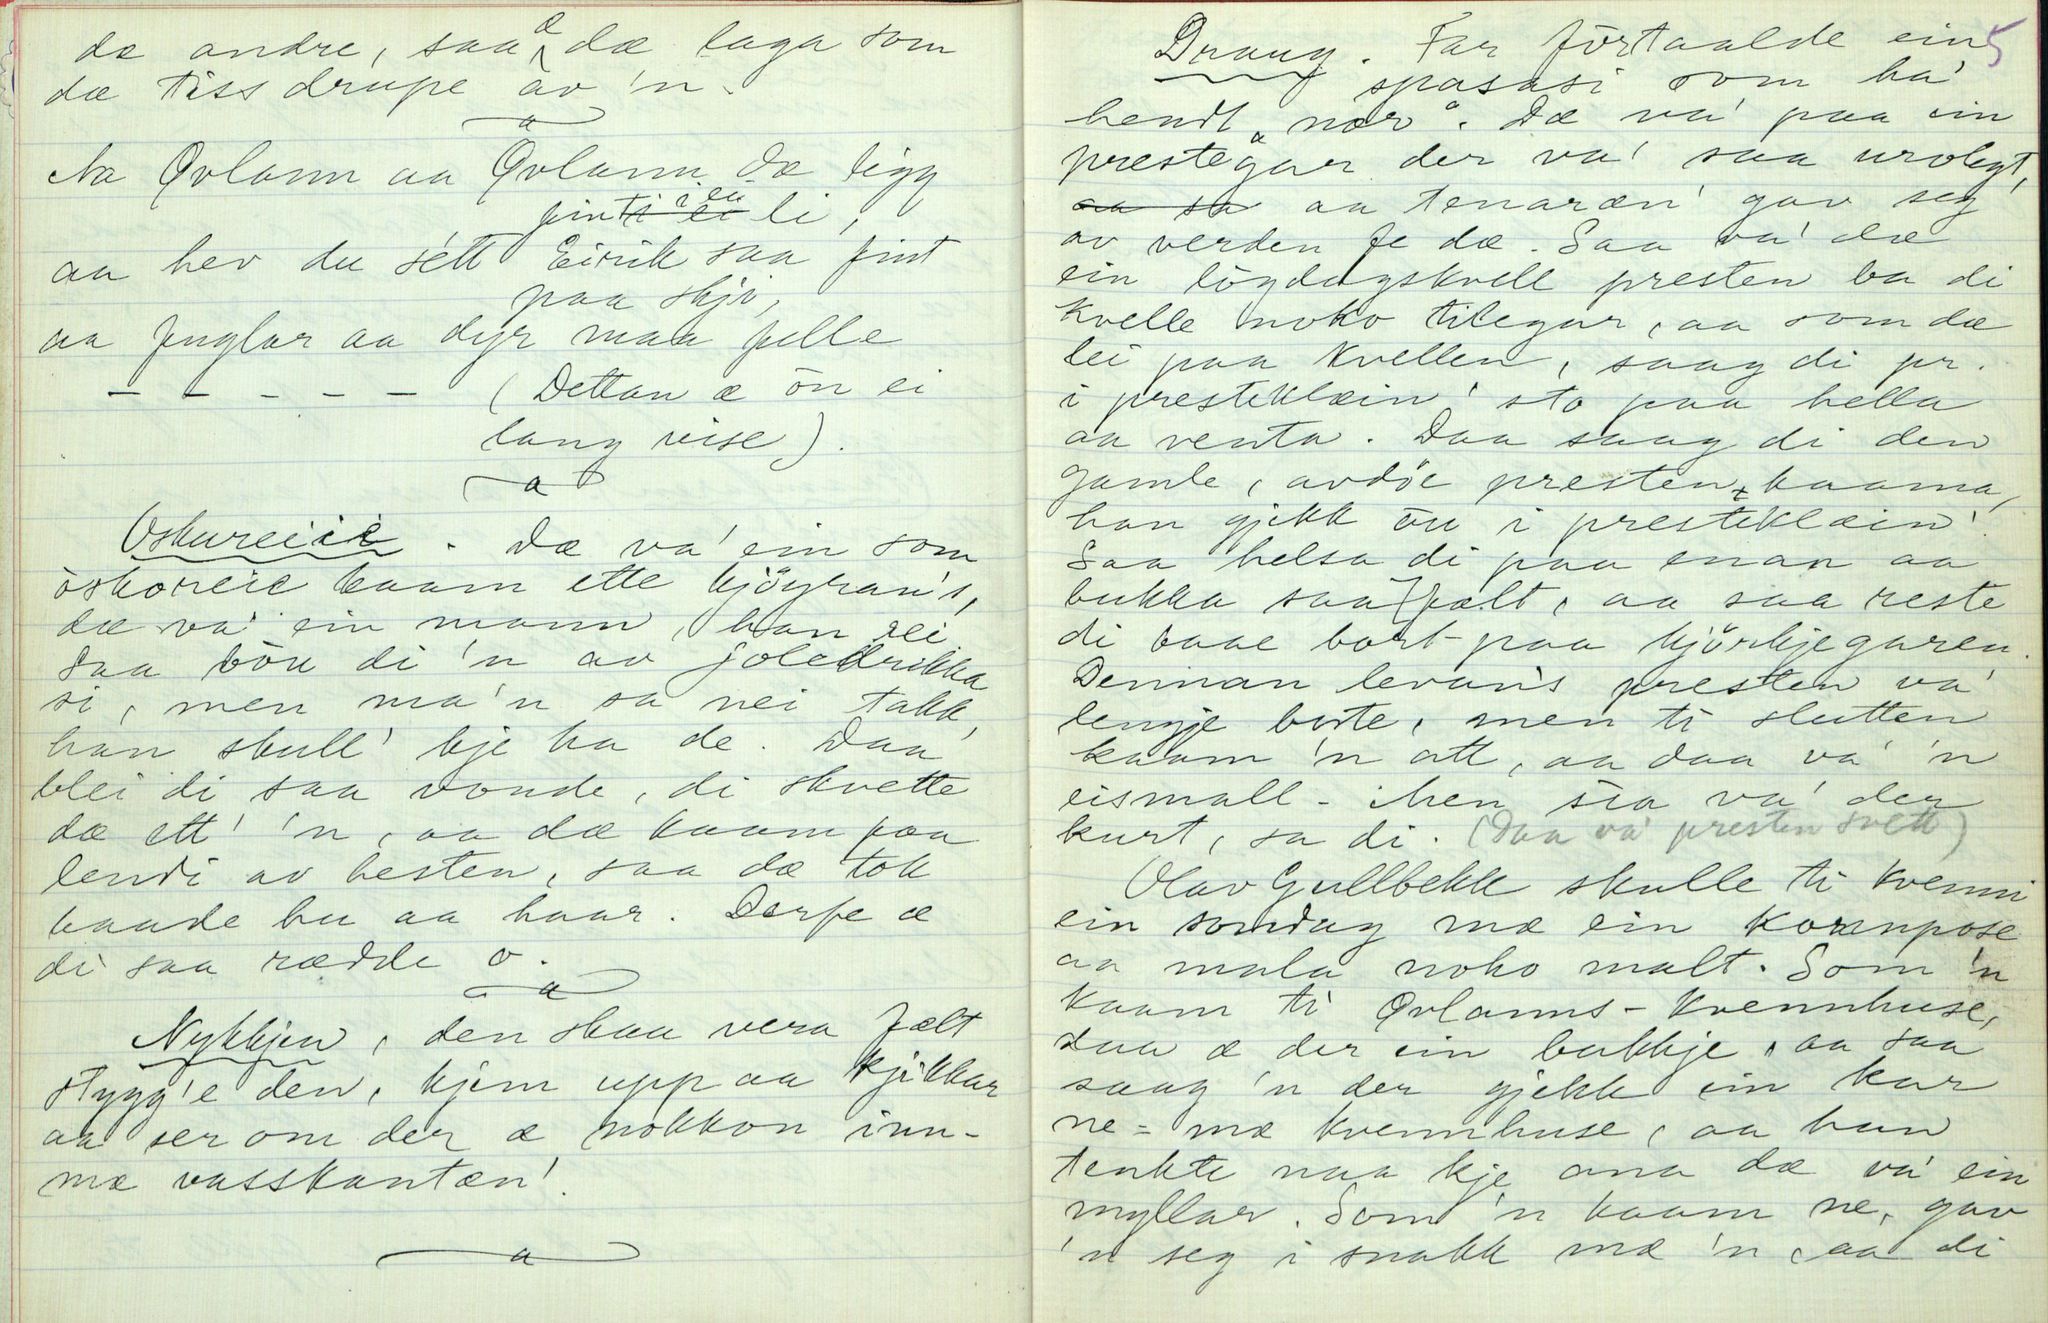 dæ andre, saa æ dæ laga som
dæ tiss drupe av 'n.
Aa Qvlann aa Qvlann dæ ligg
fint i ei li,
aa hev du sétt Eirik saa fint
paa skji,
aa fuglar aa dyr maa felle
– – – – – (Dettan æ ön ei
lang vise).
Oskureiie. Dæ va' ein som
öskoreie kaam ette kjöyran's,
dæ va' ein mann, han rei
saa böu di 'n av joledrikka
si, men ma'n sa nei takk,
han skull' kje ha de. Daa
blei di saa vonde, di skvette
dæ ett' 'n, aa dæ kaam paa
lendi av hesten, saa dæ tok
baade hu aa haar. Derfe æ
di saa rædde o.
Nykkjen, den skaa vera fælt
stygg'e den, kjem upp aa kjikkar
aa ser om der æ nokkon inn-
mæ vasskanten'.
5
Draug. Far förtaalde ein
spasasi som ha'
hendt "nör". Dæ va' paa ein
prestegar der va' saa uroligt,
aa tenaræn' gav seg
av verden fe dæ. Saa va' dæ
ein lögdagskvell presten ba di
kvelle noko tilegar, aa som dæ
lei paa kvellen, saag di pr.
i prestéklæin' sto paa hella
aa venta. Daa saag di den
gamle, avdöe presten kaama,
han gjekk öu i presteklæin'.
Saa helsa di paa enan aa
bukka saa fælt, aa saa reste
di baae bort paa kjörkjegaren.
Dennan levan's presten va'
lengje borte, men ti slutten
kaam 'n att, aa daa va' 'n
eismall – Men sia va' der
kurt, sa di. (Daa va' presten svett)
Olav Gullbekk skulle ti kvenni
ein sondag mæ ein kornpose
aa mala noko malt. Som 'n
kaam ti Qvlanns-kvennhuse,
daa æ der ein bakkje, aa saa
saag 'n der gjekk ein kar
ne-mæ kvennhuse, aa han
tenkte naa kje ana dæ va' ein
myllar. Som 'n kaam ne, gav
'n seg i snakk mæ 'n, aa di